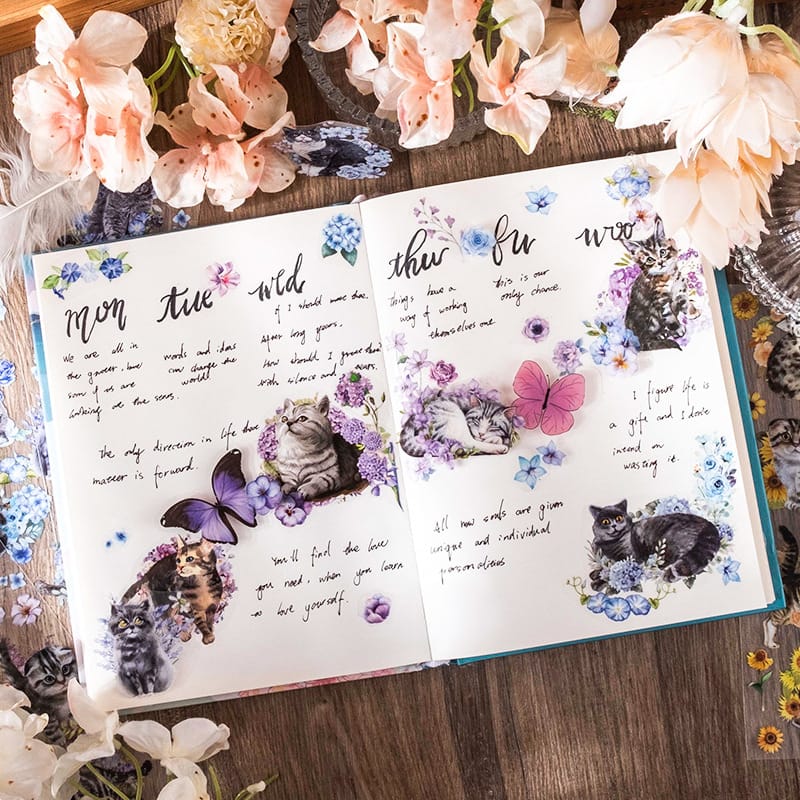 mon tue wed
We are all in
the gutter, but
som of us are
looking at the sears.
words and ideas
can change the
world!
if I should meet thee.
After long years,
How should I greet thee
with silence and tears.
the only direction in life that
matter is forward.
You'll find the love
you need, when you learn
to love yourself.
thur fri woo
things have a
way of working
themselves one
this is our
only chance.
I figure life is
a gift and I don't
intend on
wasting it.
All new souls are given
unique and individual
personalities